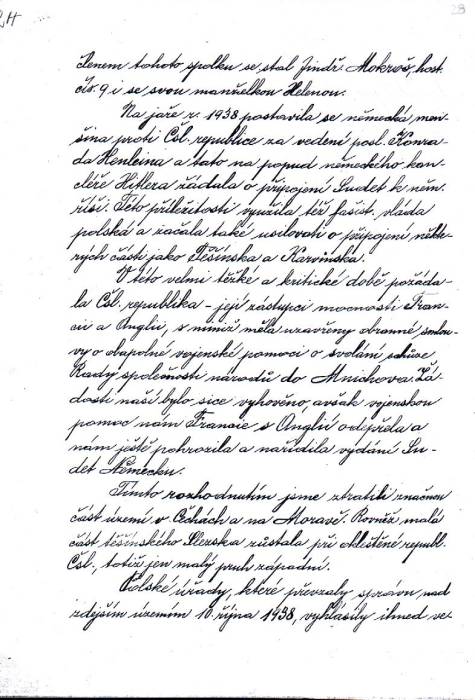 28
členem tohoto spolku se stal Jindř. Mokroš, host.
čís. 9. i se svou manželkou Helenou.
Na jaře r. 1938 postavila se německá men-
šina proti Čsl. republice za vedení posl. Konra-
da Henleina a tato na popud německého kan-
cléře Hitlera žádala o připojení Sudet k něm.
říši. Této příležitosti využila též fašist. vláda
polská a začala také usilovati o připojení někte-
rých částí jako Těšínska a Karvinska.
V této velmi těžké a kritické době požáda-
la Čsl. republika - její zástupci mocnosti Fran-
cii a Anglii, s nimiž měla uzavřeny obranné smlou-
vy o obapolné vojenské pomoci o svolání schůze
Rady společnosti národů do Mnichova. Žá-
dosti naší bylo sice vyhověno, avšak vojenskou
pomoc nám Francie s Anglií odepřela a
nám ještě pohrozila a nařídila vydání Su-
det Německu.
Tímto rozhodnutím jsme ztratili značnou
část území v Čechách a na Moravě. Rovněž malá
část těšínského Slezska zůstala při okleštěné republ.
Čsl., totiž jen malý pruh západní.
Polské úřady, které převzaly správu nad
zdejším územím 10. října 1938, vyhlásily ihned ve-